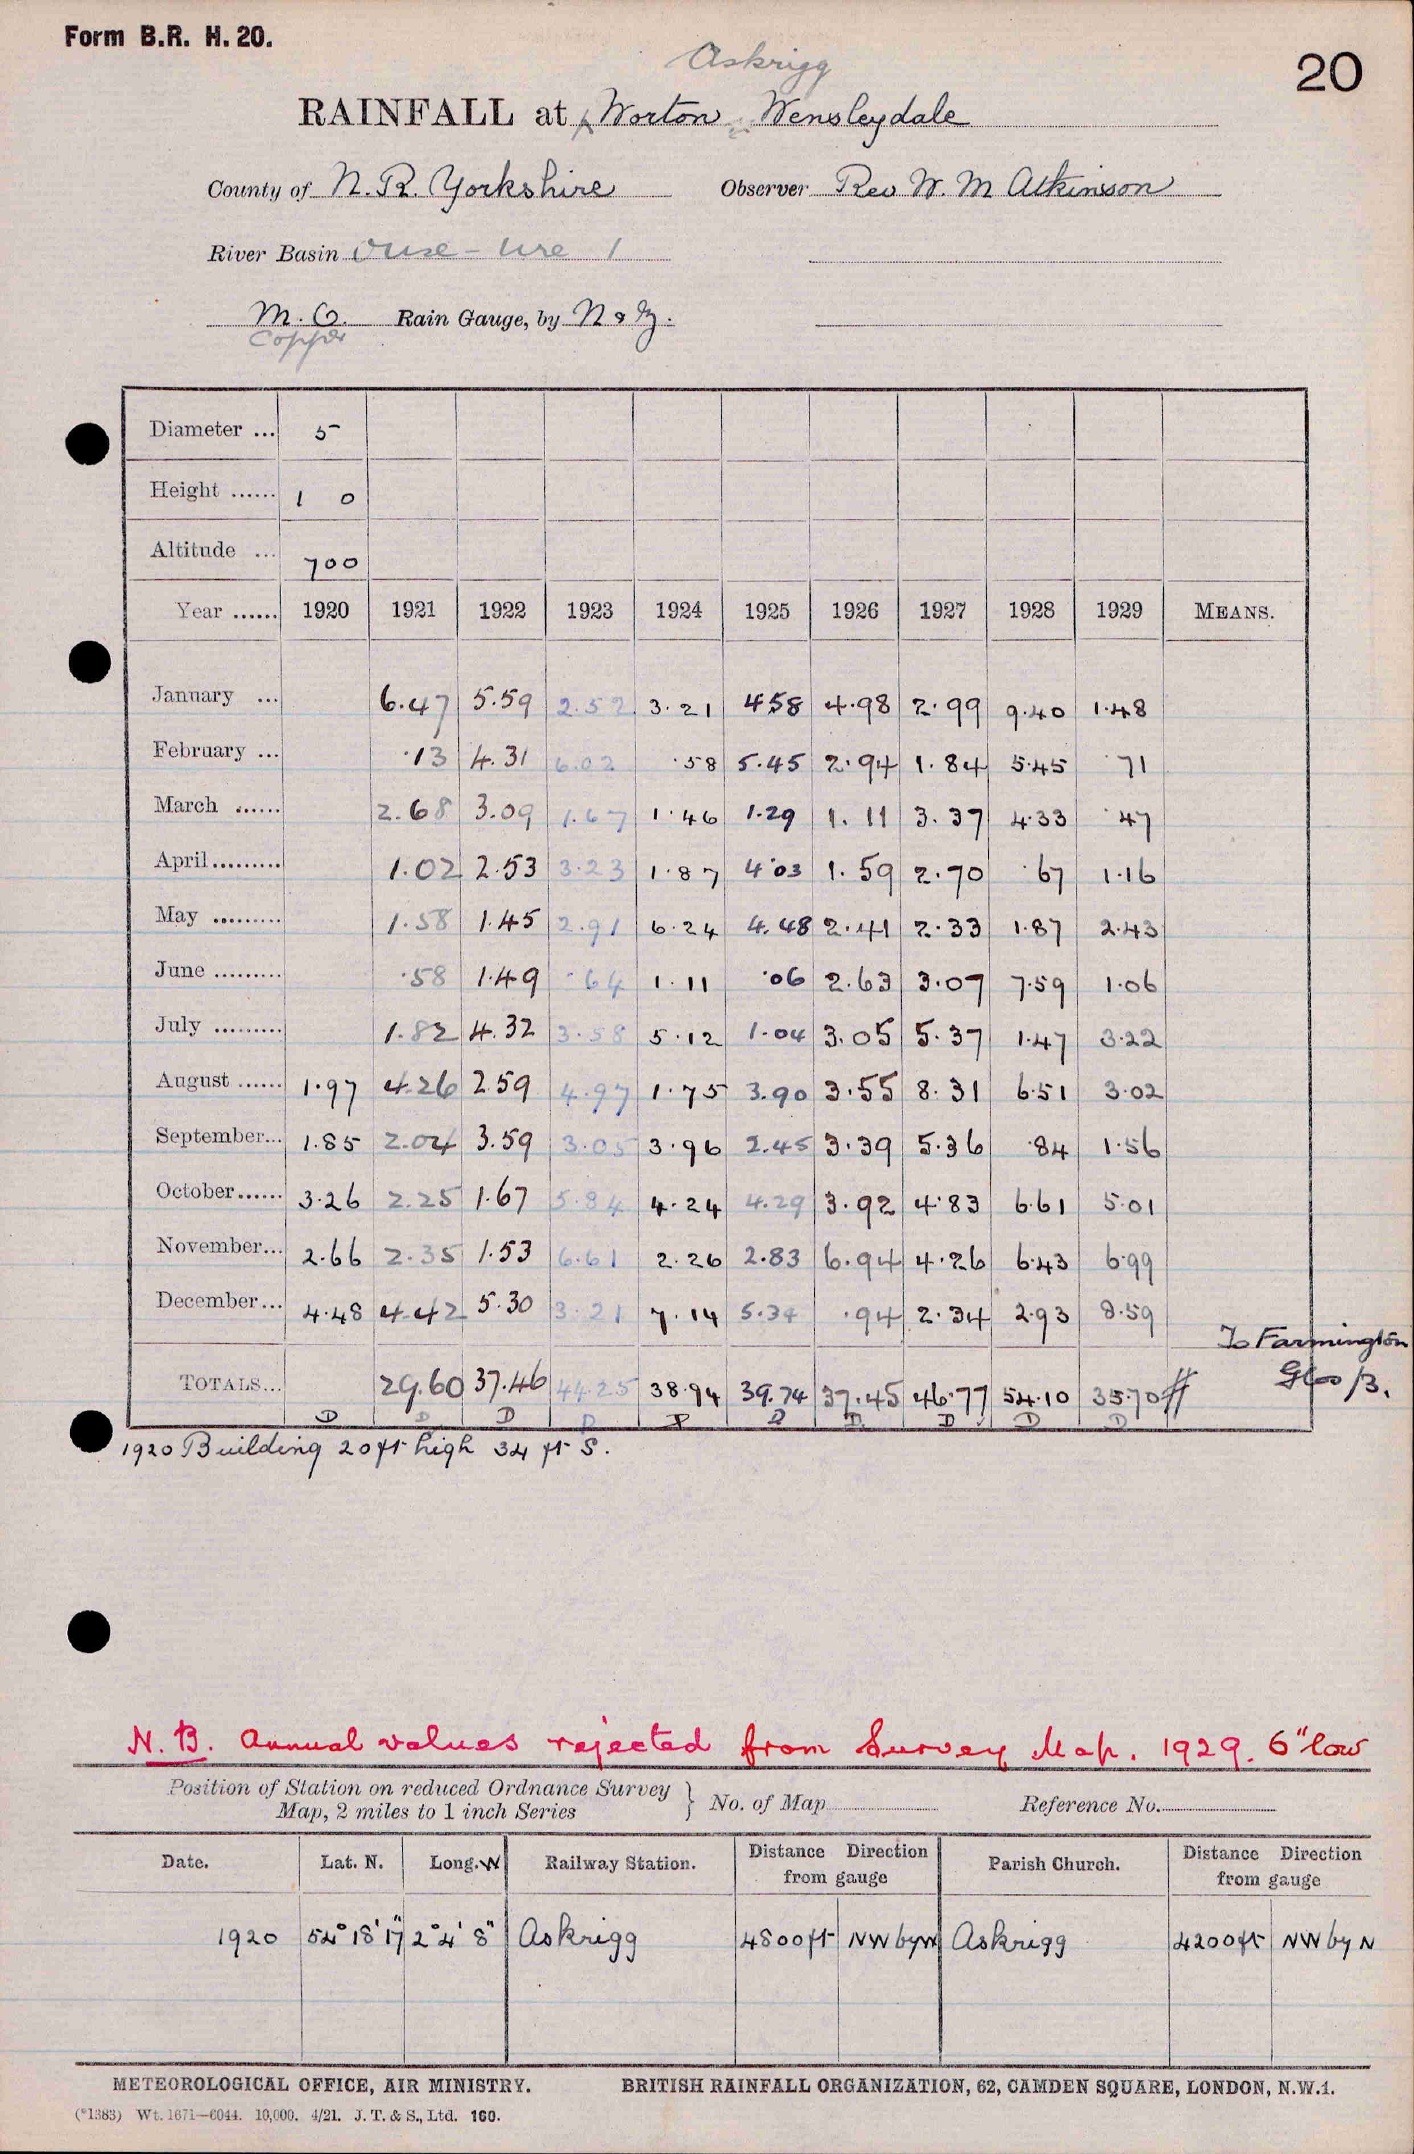 Form B.R. H. 20.
20
Askrigg
RAINFALL at Worton Wensleydale
County of N. R. Yorkshire Observer Rev W. M Atkinson
River Basin Ouse - Ure 1
M. O. Rain Gauge, by N & Z.
Copper
Diameter ... 5
Height ...... 1 0
Altitude ... 700
Year ...... 1920 1921 1922 1923 1924 1925 1926 1927 1928 1929 MEANS.
January ... 6.47 5.59 2.52 3.21 4.58 4.98 2.99 9.40 1.48
February ... .13 4.31 6.02 .58 5.45 2.94 1.84 5.45 .71
March ...... 2.68 3.09 1.67 1.46 1.29 1.11 3.37 4.33 .47
April......... 1.02 2.53 3.23 1.87 4.03 1.59 2.70 .67 1.16
May ......... 1.58 1.45 2.91 6.24 4.48 2.41 2.33 1.87 2.43
June ......... .58 1.49 .64 1.11 .06 2.63 3.07 7.59 1.06
July ......... 1.82 4.32 3.58 5.12 1.04 3.05 5.37 1.47 3.22
August ...... 1.97 4.26 2.59 4.97 1.75 3.90 3.55 8.31 6.51 3.02
September... 1.85 2.04 3.59 3.05 3.96 2.45 3.39 5.36 .84 1.56
October...... 3.26 2.25 1.67 5.84 4.24 4.29 3.92 4.83 6.61 5.01
November... 2.66 2.35 1.53 6.61 2.26 2.83 6.94 4.26 6.43 6.99
December... 4.48 4.42 5.30 3.21 7.14 5.34 .94 2.34 2.93 8.59
To Farmington
Glos /3.
TOTALS... 29.60 37.46 44.25 38.94 39.74 37.45 46.77 54.10 35.70
D D D D D D D D D D
1920 Building 20 ft high 34 ft S.
N.B. Annual values rejected from Survey Map. 1929. 6" low
Position of Station on reduced Ordnance Survey
Map, 2 miles to 1 inch Series } No. of Map Reference No.
Date. Lat. N. Long. W Railway Station. Distance from gauge Direction Parish Church. Distance from gauge Direction
1920 54° 18' 17" 2° 4' 8" Askrigg 4800 ft NW by W Askrigg 4200 ft NW by N
METEOROLOGICAL OFFICE, AIR MINISTRY. BRITISH RAINFALL ORGANIZATION, 62, CAMDEN SQUARE, LONDON, N.W.1.
(*1383) Wt. 1671—6044. 10,000. 4/21. J. T. & S., Ltd. 160.